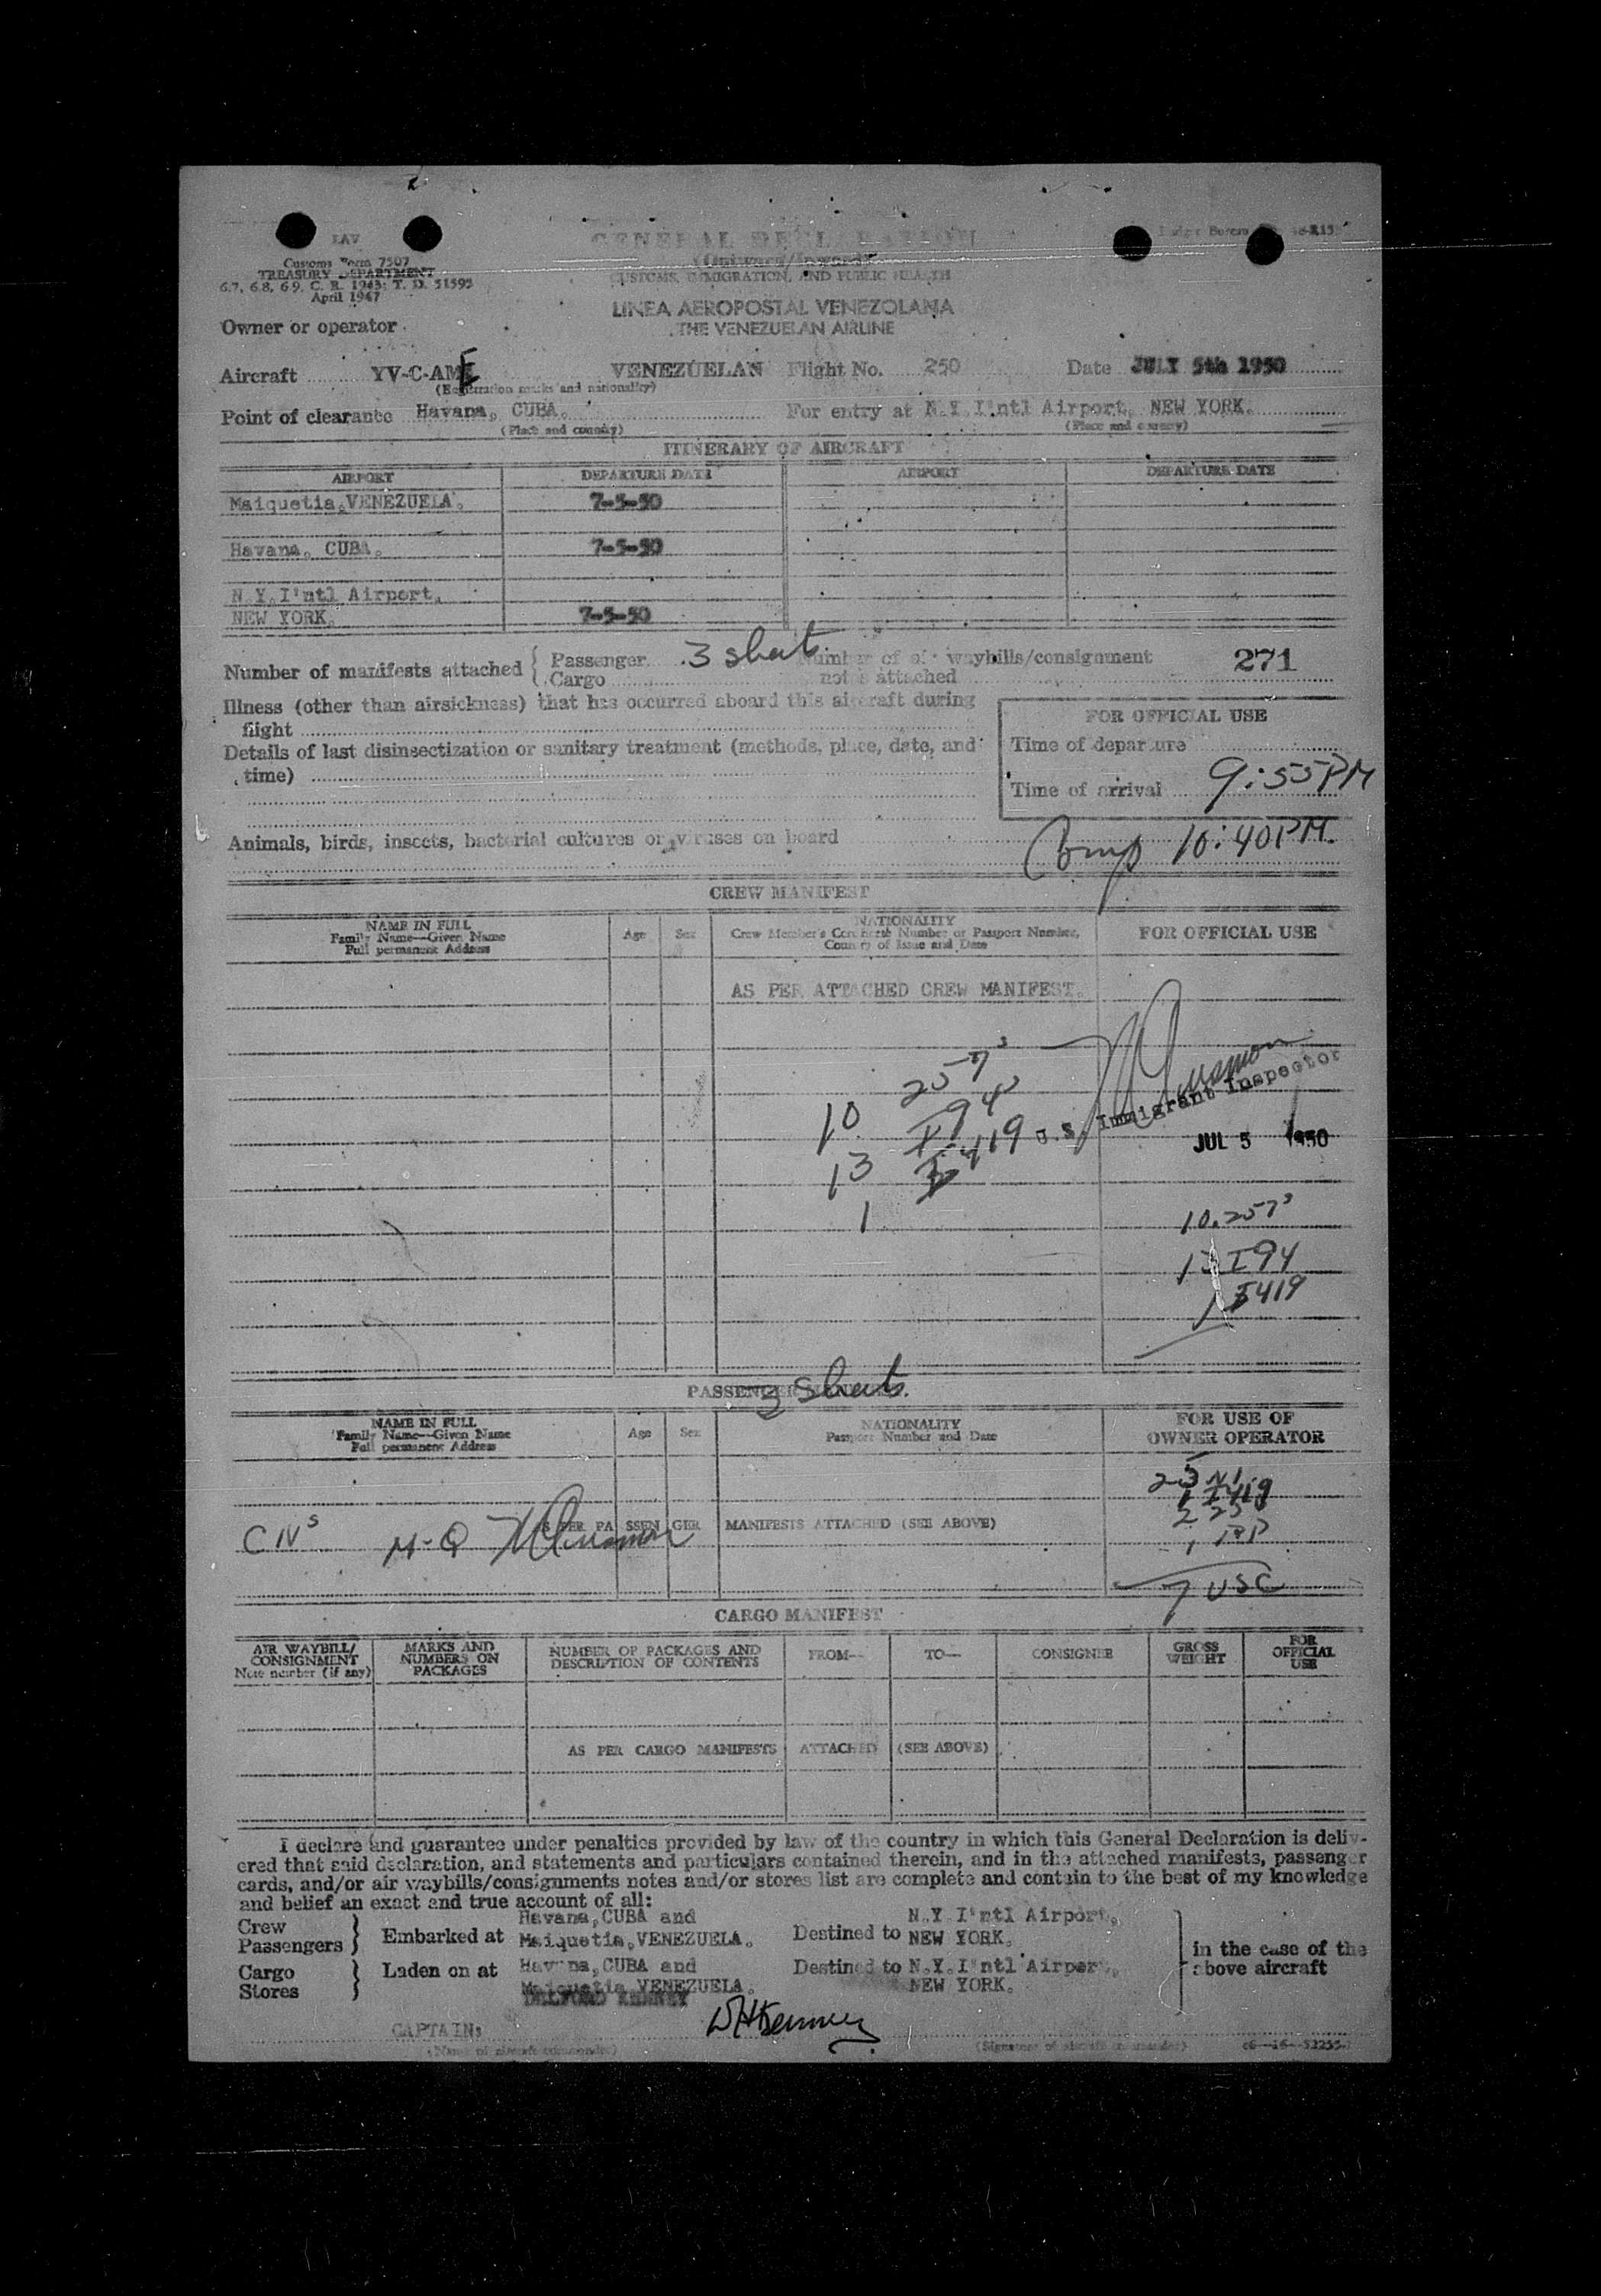 LAV
GENERAL DECLARATION
Budget Bureau
Customs Form 7507
TREASURY DEPARTMENT
6.7, 6.8, 6.9, C. R. 1943; T. D. 51595
April 1947
(Outward/Inward)
CUSTOMS, IMMIGRATION, AND PUBLIC HEALTH
LINEA AEROPOSTAL VENEZOLANA
THE VENEZUELAN AIRLINE
Owner or operator
Aircraft YV-C-AME VENEZUELAN Flight No. 250 Date JULY 5th 1950
(Registration marks and nationality)
Point of clearance Havana, CUBA. For entry at N.Y.I'ntl Airport, NEW YORK.
(Place and country) (Place and country)
ITINERARY OF AIRCRAFT
AIRPORT DEPARTURE DATE AIRPORT DEPARTURE DATE
Maiquetia,VENEZUELA. 7-5-50
Havana, CUBA. 7-5-50
N.Y.I'ntl Airport,
NEW YORK. 7-5-50
Number of manifests attached { Passenger 3 sheets Number of air waybills/consignment 271
Cargo notes attached
Illness (other than airsickness) that has occurred aboard this aircraft during
flight
FOR OFFICIAL USE
Details of last disinsectization or sanitary treatment (methods, place, date, and
time)
Time of departure
Time of arrival 9:55PM
Animals, birds, insects, bacterial cultures or viruses on board
Comp 10:40PM.
CREW MANIFEST
NAME IN FULL
Family Name—Given Name
Full permanent Address
Age Sex
NATIONALITY
Crew Member's Certificate Number or Passport Number,
Country of Issue and Date
FOR OFFICIAL USE
AS PER ATTACHED CREW MANIFEST.
10 257s
13 I94s
1 I419
U.S. Immigrant Inspector
JUL 5 1950
10 257s
13 I94
1 I419
PASSENGER
3 Sheets.
NAME IN FULL
Family Name—Given Name
Full permanent Address
Age Sex
NATIONALITY
Passport Number and Date
FOR USE OF
OWNER OPERATOR
1 I419
AS PER PASSENGER MANIFESTS ATTACHED (SEE ABOVE)
1 RP
7 USC
CARGO MANIFEST
AIR WAYBILL/
CONSIGNMENT
Note number (if any)
MARKS AND
NUMBERS ON
PACKAGES
NUMBER OF PACKAGES AND
DESCRIPTION OF CONTENTS
FROM— TO— CONSIGNEE
GROSS
WEIGHT
FOR
OFFICIAL
USE
AS PER CARGO MANIFESTS ATTACHED (SEE ABOVE)
I declare and guarantee under penalties provided by law of the country in which this General Declaration is deliv-
ered that said declaration, and statements and particulars contained therein, and in the attached manifests, passenger
cards, and/or air waybills/consignments notes and/or stores list are complete and contain to the best of my knowledge
and belief an exact and true account of all:
Crew
Passengers } Embarked at Havana,CUBA and
Maiquetia,VENEZUELA. Destined to N.Y.I'ntl Airport,
NEW YORK.
Cargo
Stores } Laden on at Havana,CUBA and
Maiquetia,VENEZUELA. Destined to N.Y.I'ntl Airport,
NEW YORK.
in the case of the
above aircraft
CAPTAIN:
(Name of aircraft commander) (Signature of aircraft commander)